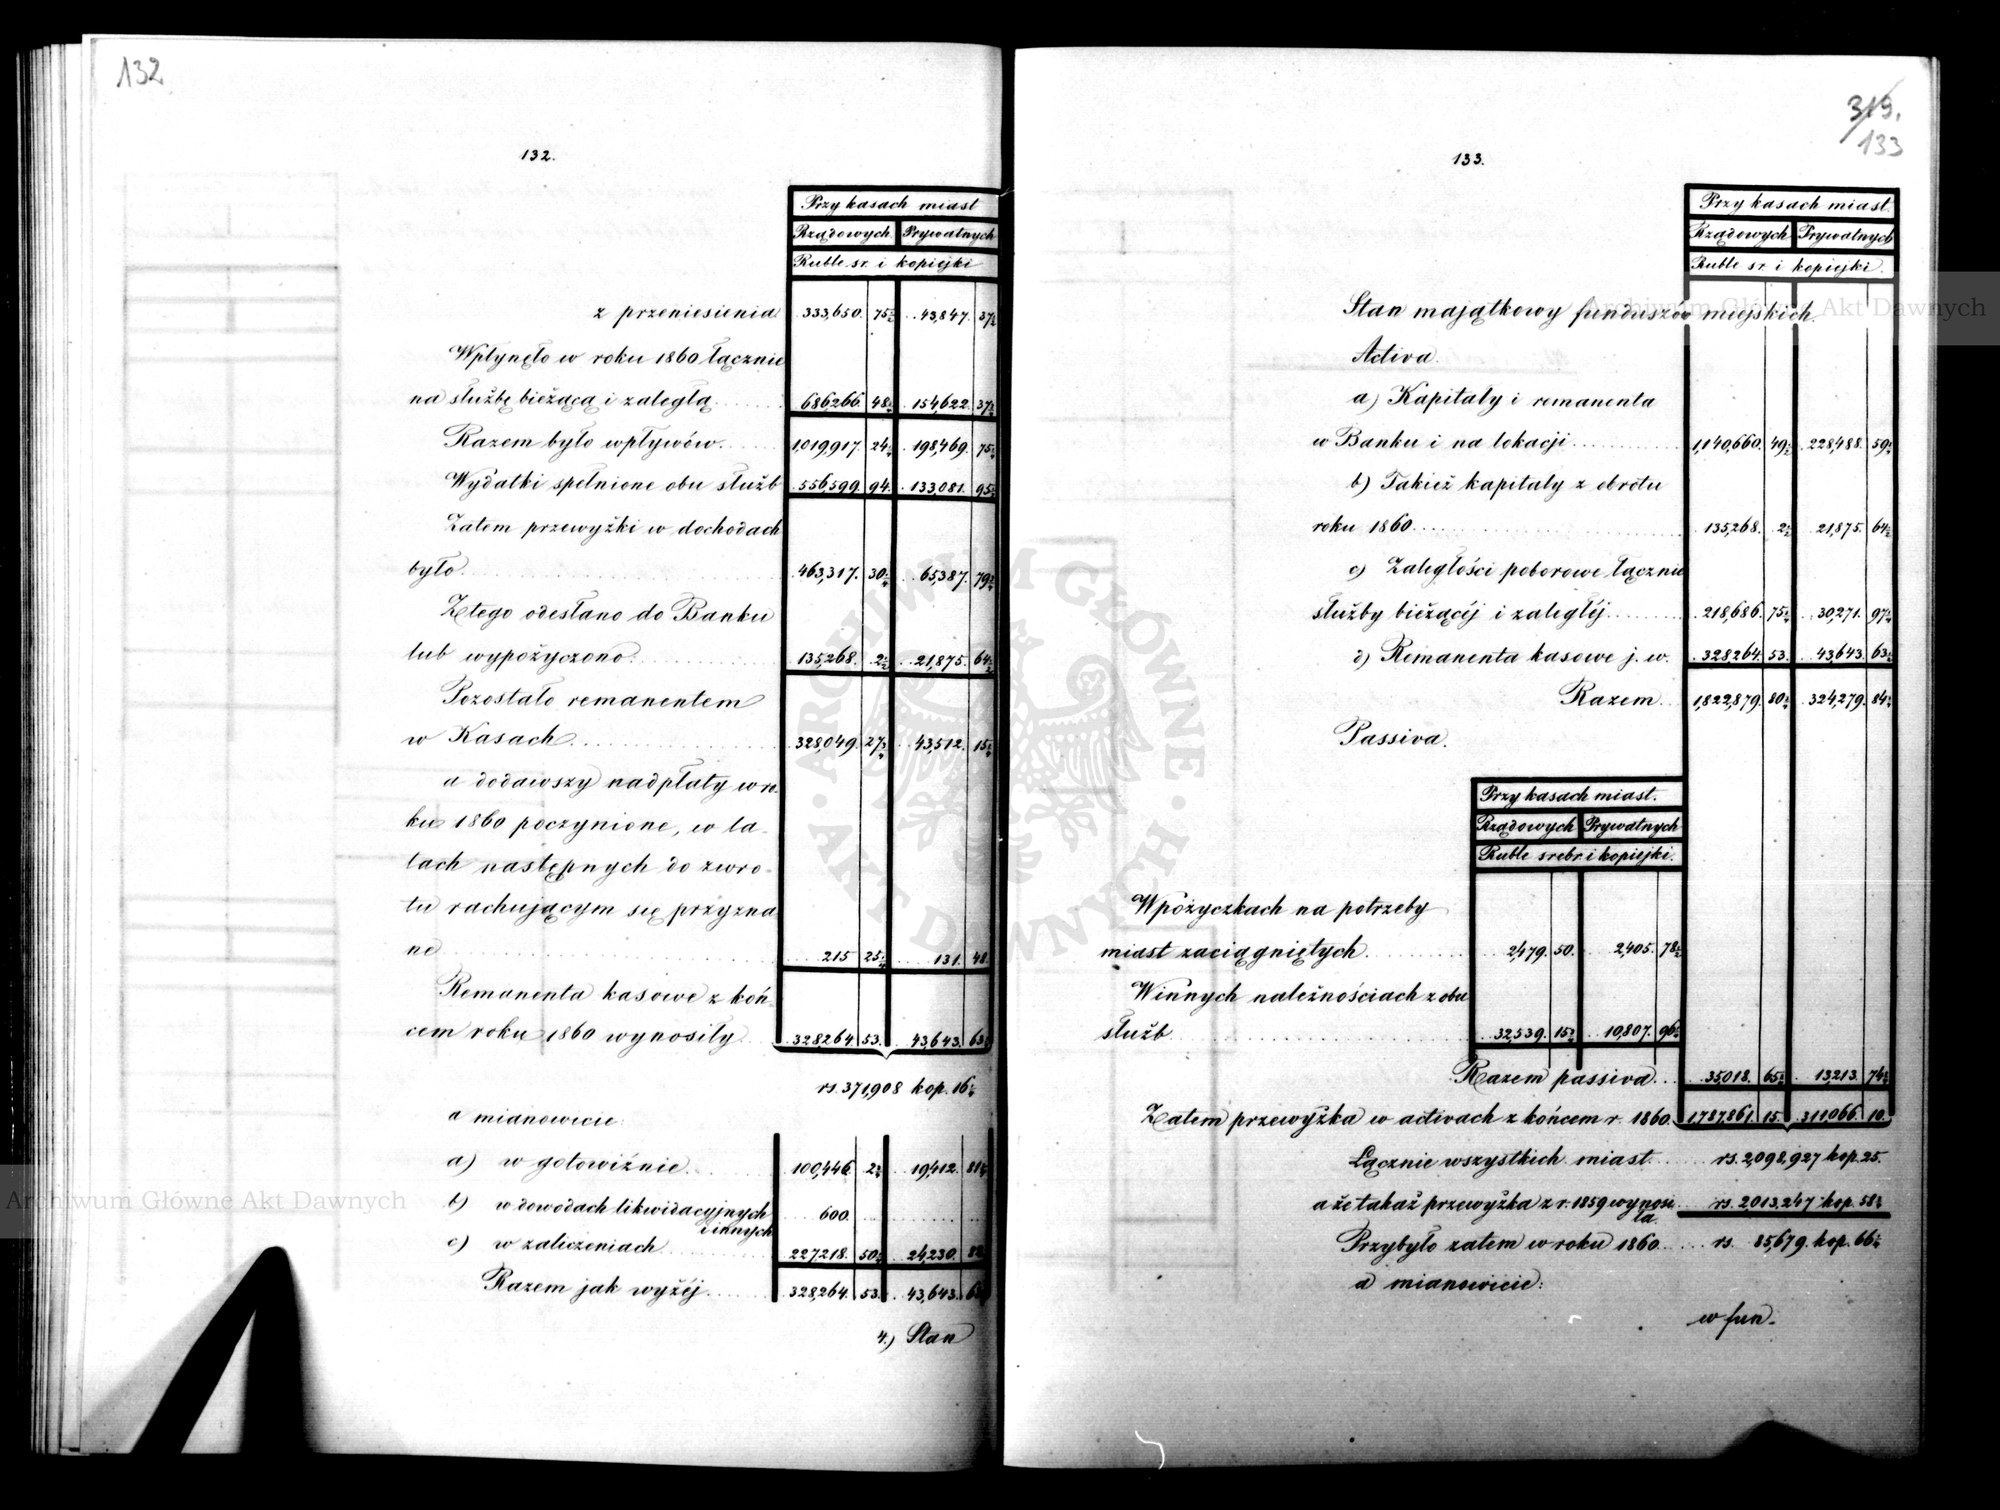 132
132.
Przy kasach miast
Rządowych Prywatnych
Ruble sr. i kopiejki
z przeniesienia 333,650. 75 43,847. 37
Wpłynęło w roku 1860 łącznie
na służbę bieżącą i zaległą 686266. 48 154,622. 37
Razem było wpływów 1,019,917. 24 198,469. 75
Wydatki spełnione obu służb 556599. 94 133,081. 95
Zatem przewyżki w dochodach
było 463,317. 30 65387. 79
Z tego odesłano do Banku
lub wypożyczono 135,268. 2 21,875. 64
Pozostało remanentem
w Kasach 328,049. 27 43,512. 15
a dodawszy nadpłaty w ro-
ku 1860 poczynione, w la-
tach następnych do zwro-
tu rachującym się przyzna
ne 215 25 131. 48
Remanenta kasowe z koń-
cem roku 1860 wynosiły 328264. 53. 43,643. 63
rs. 371,908 kop. 16
a mianowicie:
a) w gotowiźnie 100,446. 2 19,412. 81
b) w dowodach likwidacyjnych
i innych 600.
c) w zaliczeniach 227,218. 50 24,230. 82
Razem jak wyżéj 328,264. 53. 43,643. 63
4.) Stan
319.
133
133.
Przy kasach miast.
Rządowych Prywatnych
Ruble sr. i kopiejki.
Stan majątkowy funduszów miejskich.
Activa.
a) Kapitały i remanenta
w Banku i na lokacji 1,140,660. 49 228,488. 59
b) Takież kapitały z obrotu
roku 1860 135,268. 2 21,875. 64
c) Zaległości poborowe łącznie
służby bieżącéj i zaległéj 218,686. 75 30,271. 97
d) Remanenta kasowe j. w. 328,264. 53. 43,643. 63
Razem 1,822,879. 80 324,279. 84
Passiva.
Przy kasach miast.
Rządowych Prywatnych
Ruble srebr. i kopiejki.
W pożyczkach na potrzeby
miast zaciągniętych 2,479. 50. 2,405. 78
W innych należnościach z obu
służb 32,539. 15 10,807. 96
Razem passiva 35,018. 65 13,213. 74
Zatem przewyżka w activach z końcem r. 1860. 1,787,861. 15. 311,066. 10.
Łącznie wszystkich miast rs. 2,098,927 kop. 25.
a że takaż przewyżka z r. 1859 wynosi
ła rs. 2,013,247 kop. 58
Przybyło zatem w roku 1860 rs. 85,679. kop. 66
a mianowicie:
w fun-
Archiwum Główne Akt Dawnych
Archiwum Główne Akt Dawnych
ARCHIWUM GŁÓWNE · AKT DAWNYCH ·